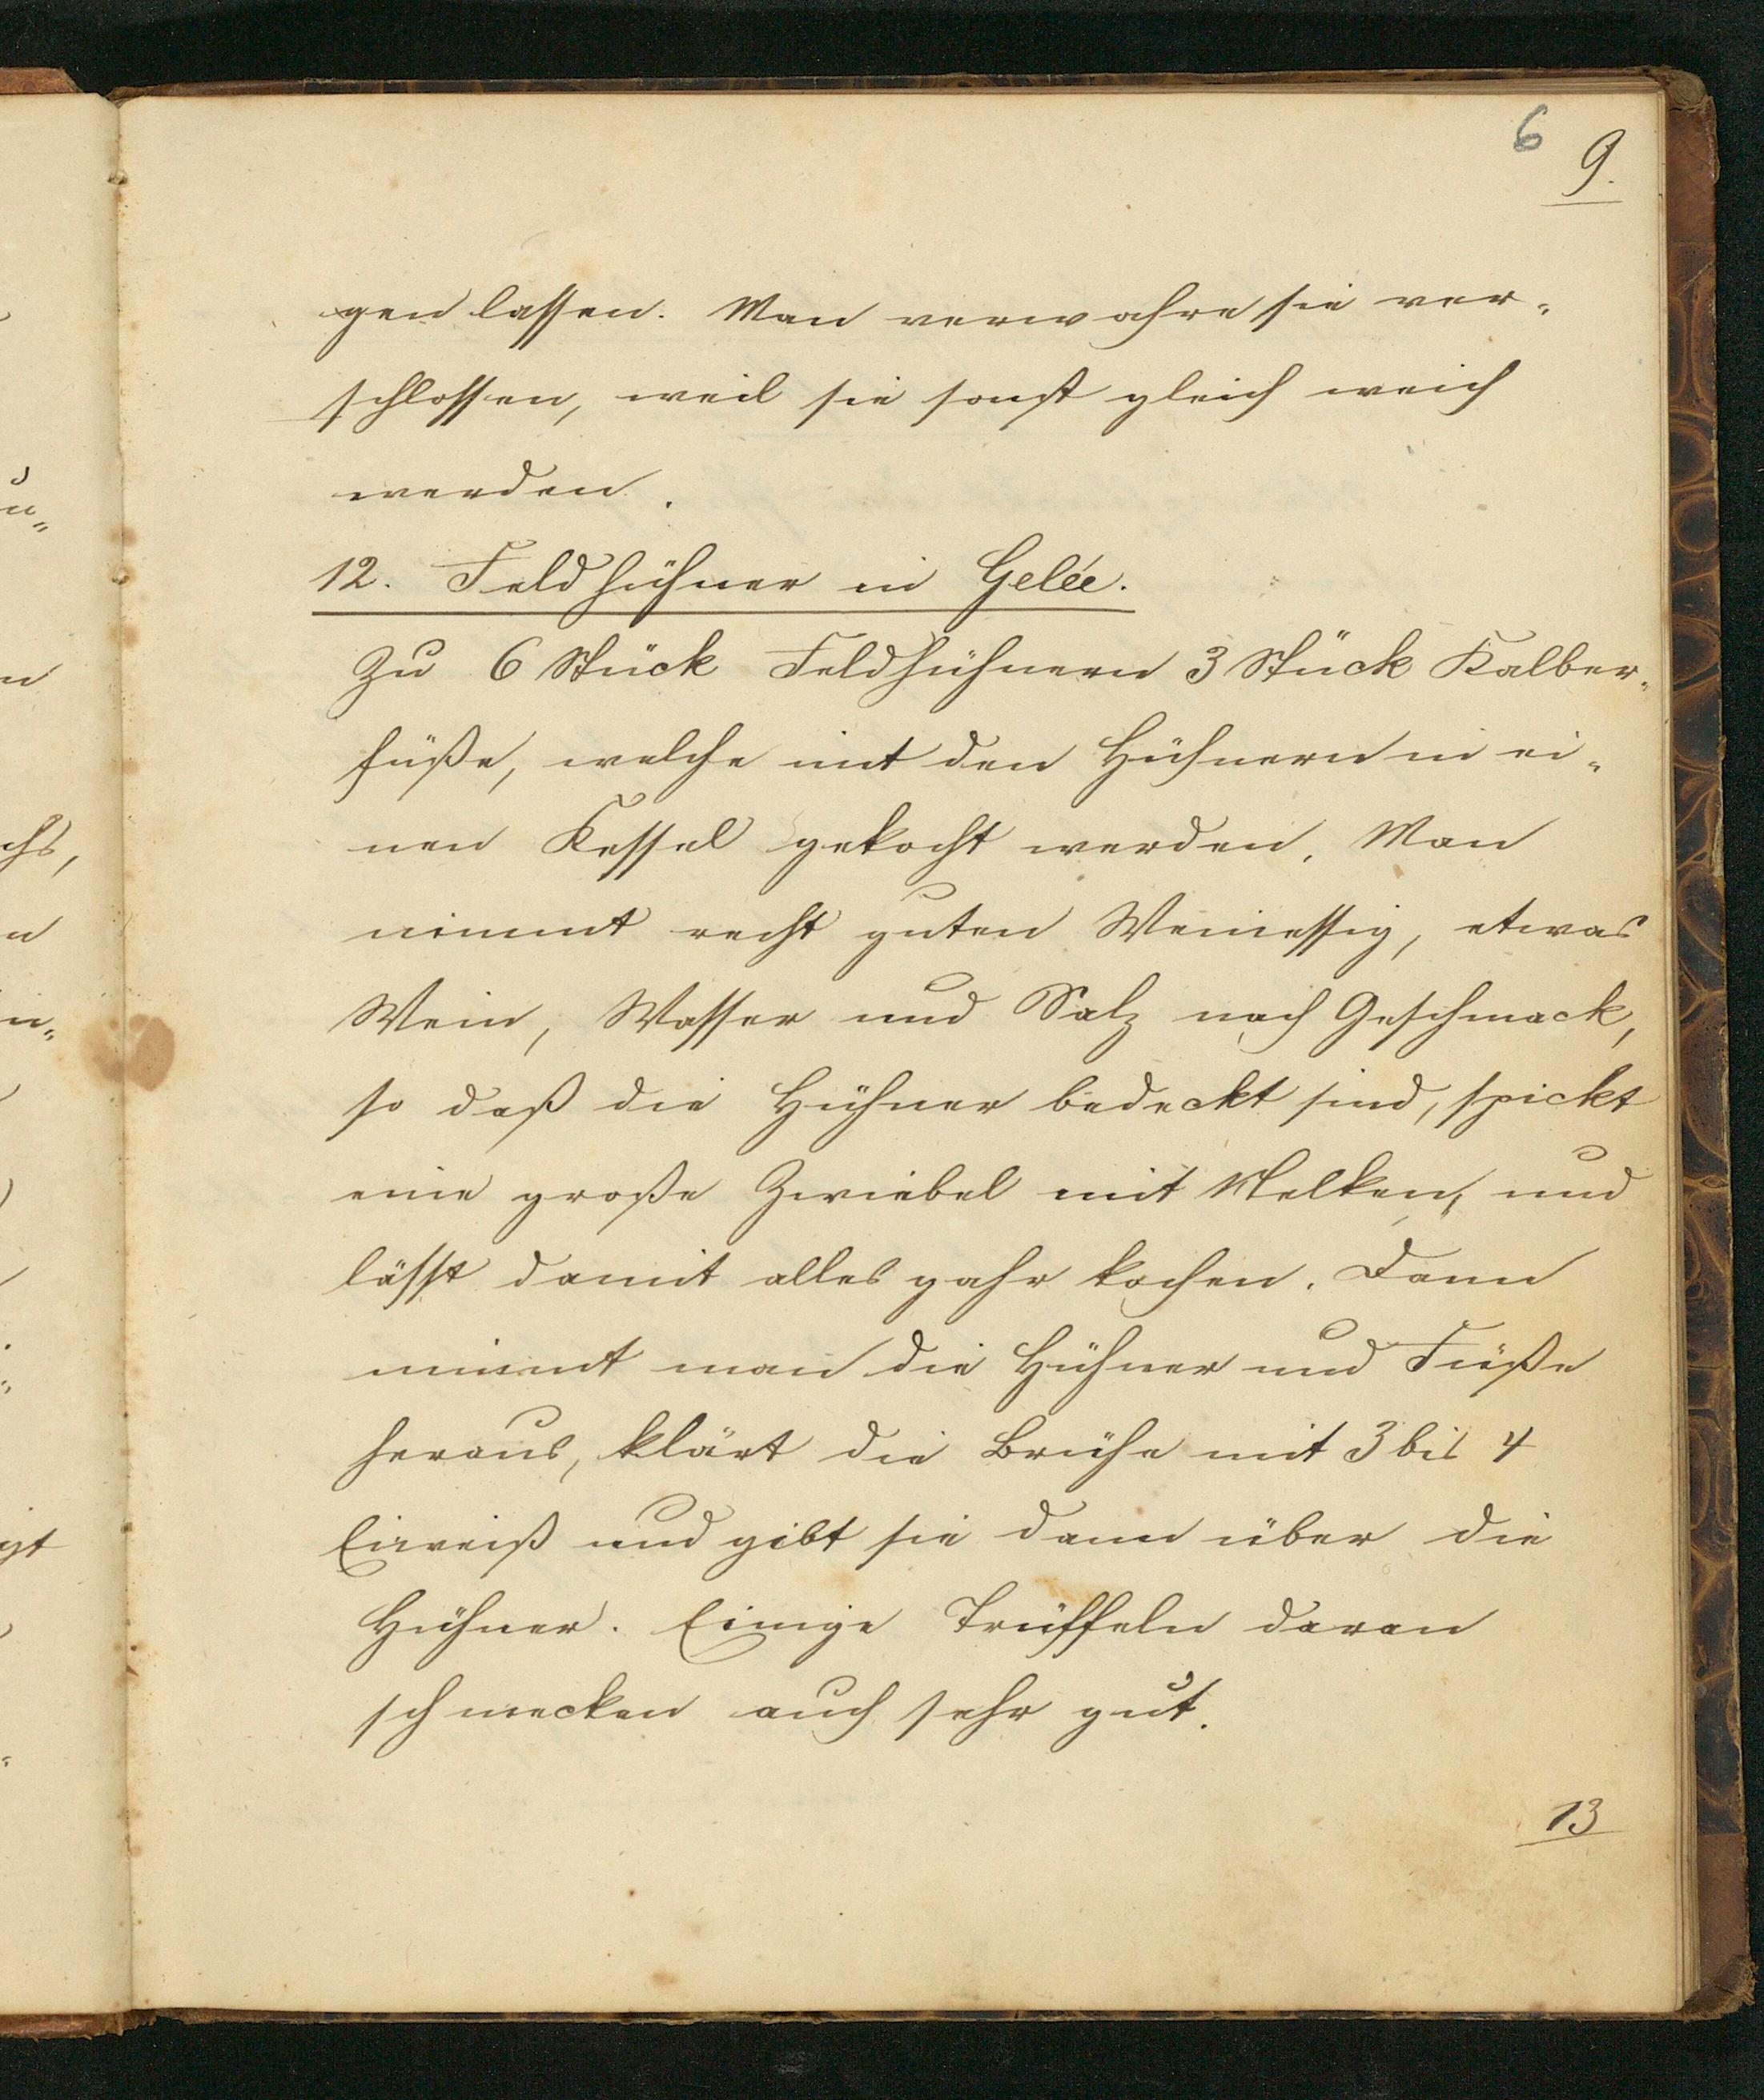 6
9.
gen lassen. Man verwahre sie ver-
schlossen, weil sie sonst gleich weich
werden.
12. Feldhühner in Gelée.
Zu 6 Stück Feldhühnern 3 Stück Kalber-
füße, welche mit den Hühnern in ei-
nen Kessel gekocht werden. Man
nimmt recht guten Weinessig, etwas
Wein, Wasser und Salz nach Geschmack,
so daß die Hühner bedeckt sind, spickt
eine große Zwiebel mit Nelken, und
lässt damit alles gahr kochen. Dann
nimmt man die Hühner und Füße
heraus, klärt die Brühe mit 3 bis 4
Eiweiß und gibt sie dann über die
Hühner. Einige Trüffeln daran
schmecken auch sehr gut.
13